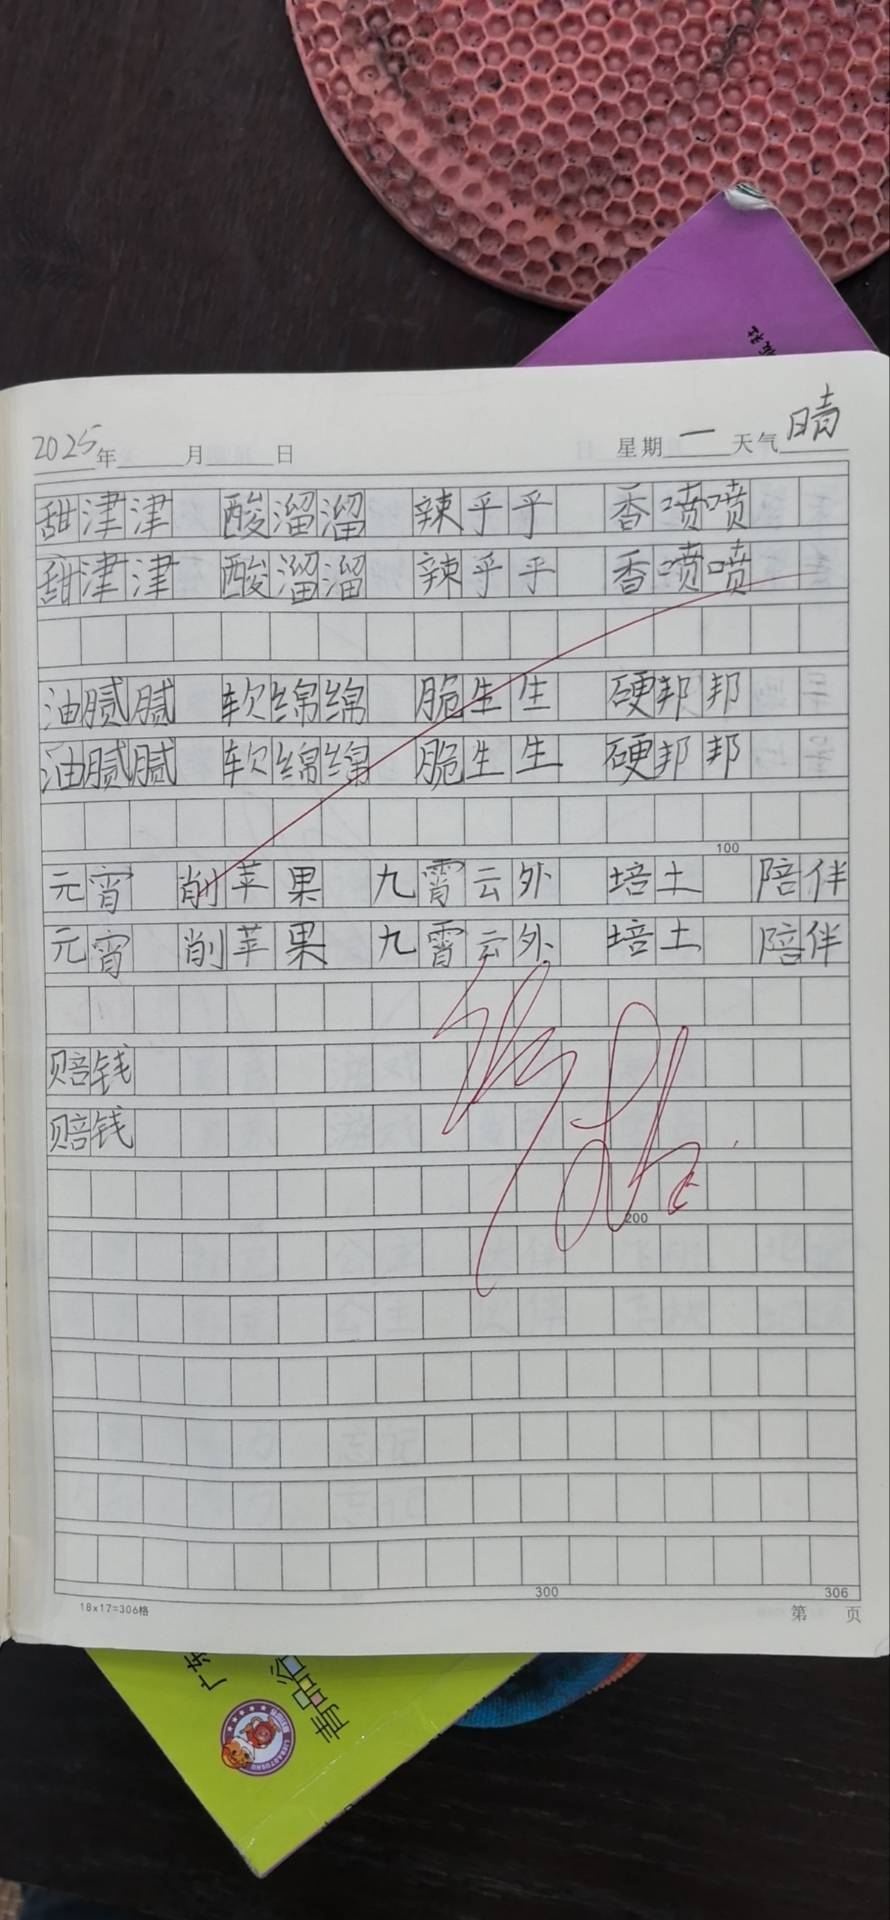 2025年 月 日 星期一 天气晴
甜津津 酸溜溜 辣乎乎 香喷喷
甜津津 酸溜溜 辣乎乎 香喷喷
油腻腻 软绵绵 脆生生 硬邦邦
油腻腻 软绵绵 脆生生 硬邦邦
100
元宵 削苹果 九霄云外 培土 陪伴
元宵 削苹果 九霄云外 培土 陪伴
赔钱
赔钱
200
300 306
18x17=306格 第 页